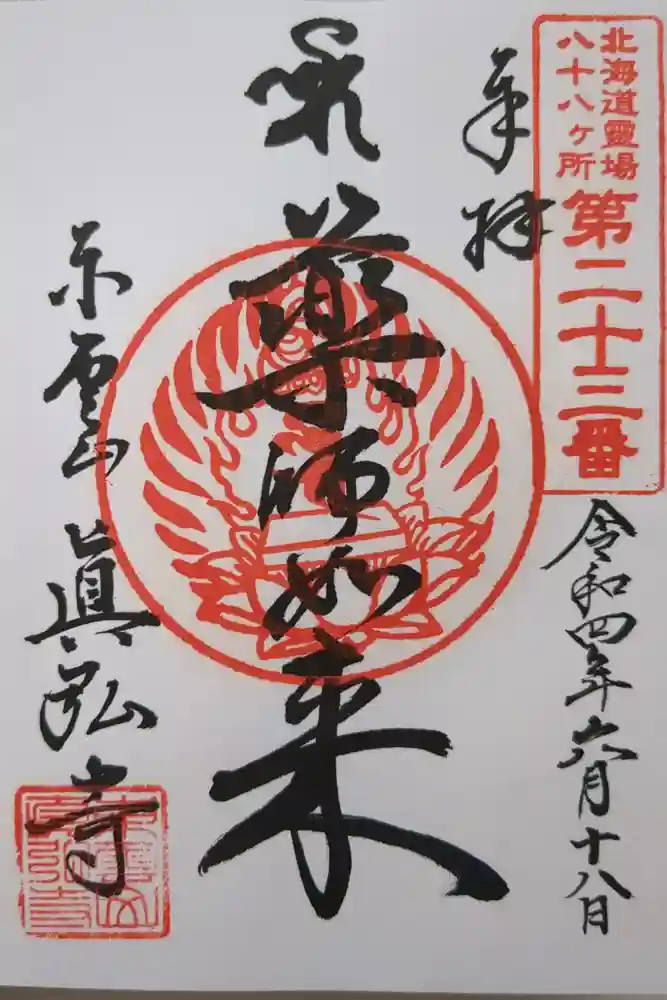 北海道靈場
八十八ヶ所
第二十三番
奉拝
令和四年六月十八日
薬師如来
真弘寺